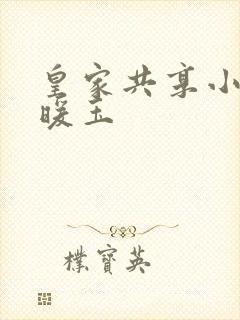 皇家共享小
暖玉
樸寶英